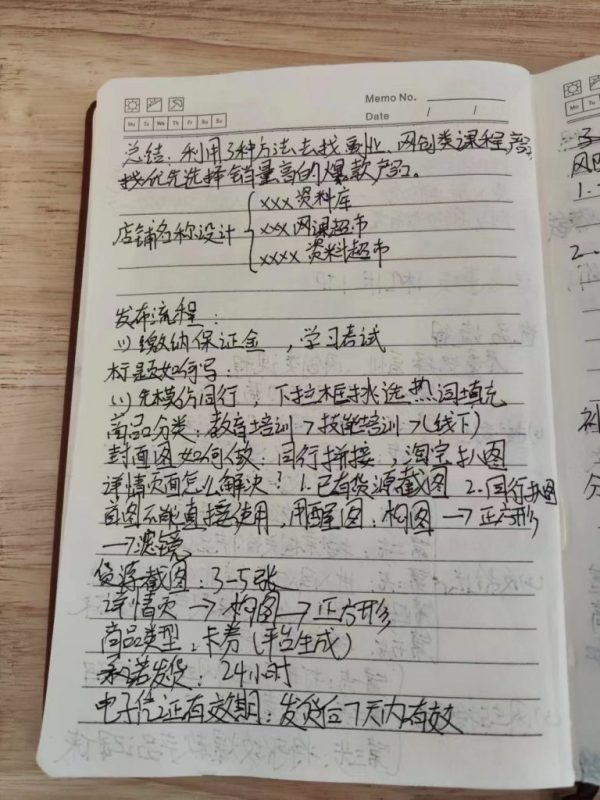 Memo No.
Mo Tu We Th Fr Sa Su
Date / /
总结:利用3种方法去找副业、网创类课程,
优先选择销量高的爆款产品。
店铺名称设计
xxx资料库
xxx网课超市
xxxx资料超市
发布流程:
(1)缴纳保证金,学习考试
标题如何写:
(1)先模仿同行,下拉框挑选热词填充
商品分类:教育培训>技能培训>(线下)
封面图如何做:同行拼接,淘宝扒图
详情页面怎么解决?1.已有货源截图 2.同行扒图
原图不能直接使用,用醒图:构图→正方形
→滤镜
货源截图:3-5张
详情页→构图→正方形
商品类型:卡券(平台生成)
承诺发货:24小时
电子凭证有效期:发货后7天内有效